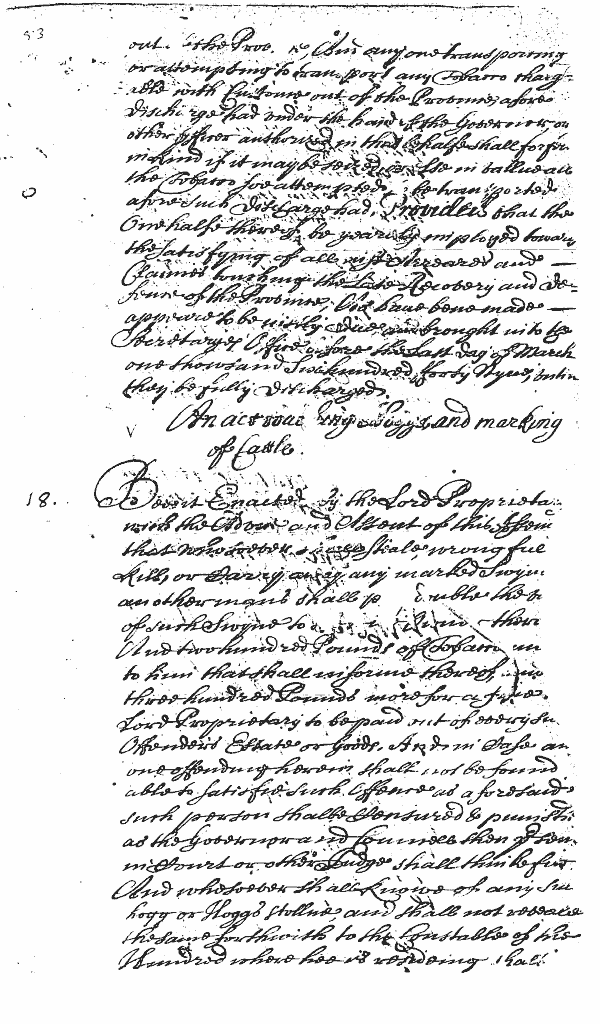 53
out the Prov. And any one transporting
or attempting to transport any Tobacco charg-
able with Custome out of the Province afore
discharge had under the hand of the Governor or
other officer authorized in that behalfe shall forfeit
in kind if it may be seized or else in vallue all
the Tobacco soe attempted to be transported
afore such discharge had, Provided that the
One halfe thereof be yearely employed towards
the satisfying of all just Arreares and
Claimes touching the Late Recovery and de-
fence of the Province, as have bene made
appeare to be justly due and brought into the
Secretaryes Office afore the Last day of March
one thousand Sixhundred forty Nyne, untill
they be fully discharged.
An act Hoggs and marking
of Cattle.
18. Bee it Enacted by the Lord Proprietary
with the Advice and Assent of this
that whosoever shall steale, wrongfully
kill, or Carry away any marked Swyne
another mans shall double the
of such Swyne to
And two hundred Pounds of Tobacco
to him that shall informe thereof
three hundred Pounds more for a fyne
Lord Proprietary to be paid out of every such
Offenders Estate or Goods. And in Case any
one offending herein shall not be found
able to satisfie such offence as aforesaid
such person shalbe Censured & punished
as the Governor and Councell then
in Court or other Judge shall thinke fitt
And whosoever shall knowe of any such
hogg or Hoggs stollne, and shall not reveale
the same forthwith to the Constable of the
Hundred where hee is resideing shall